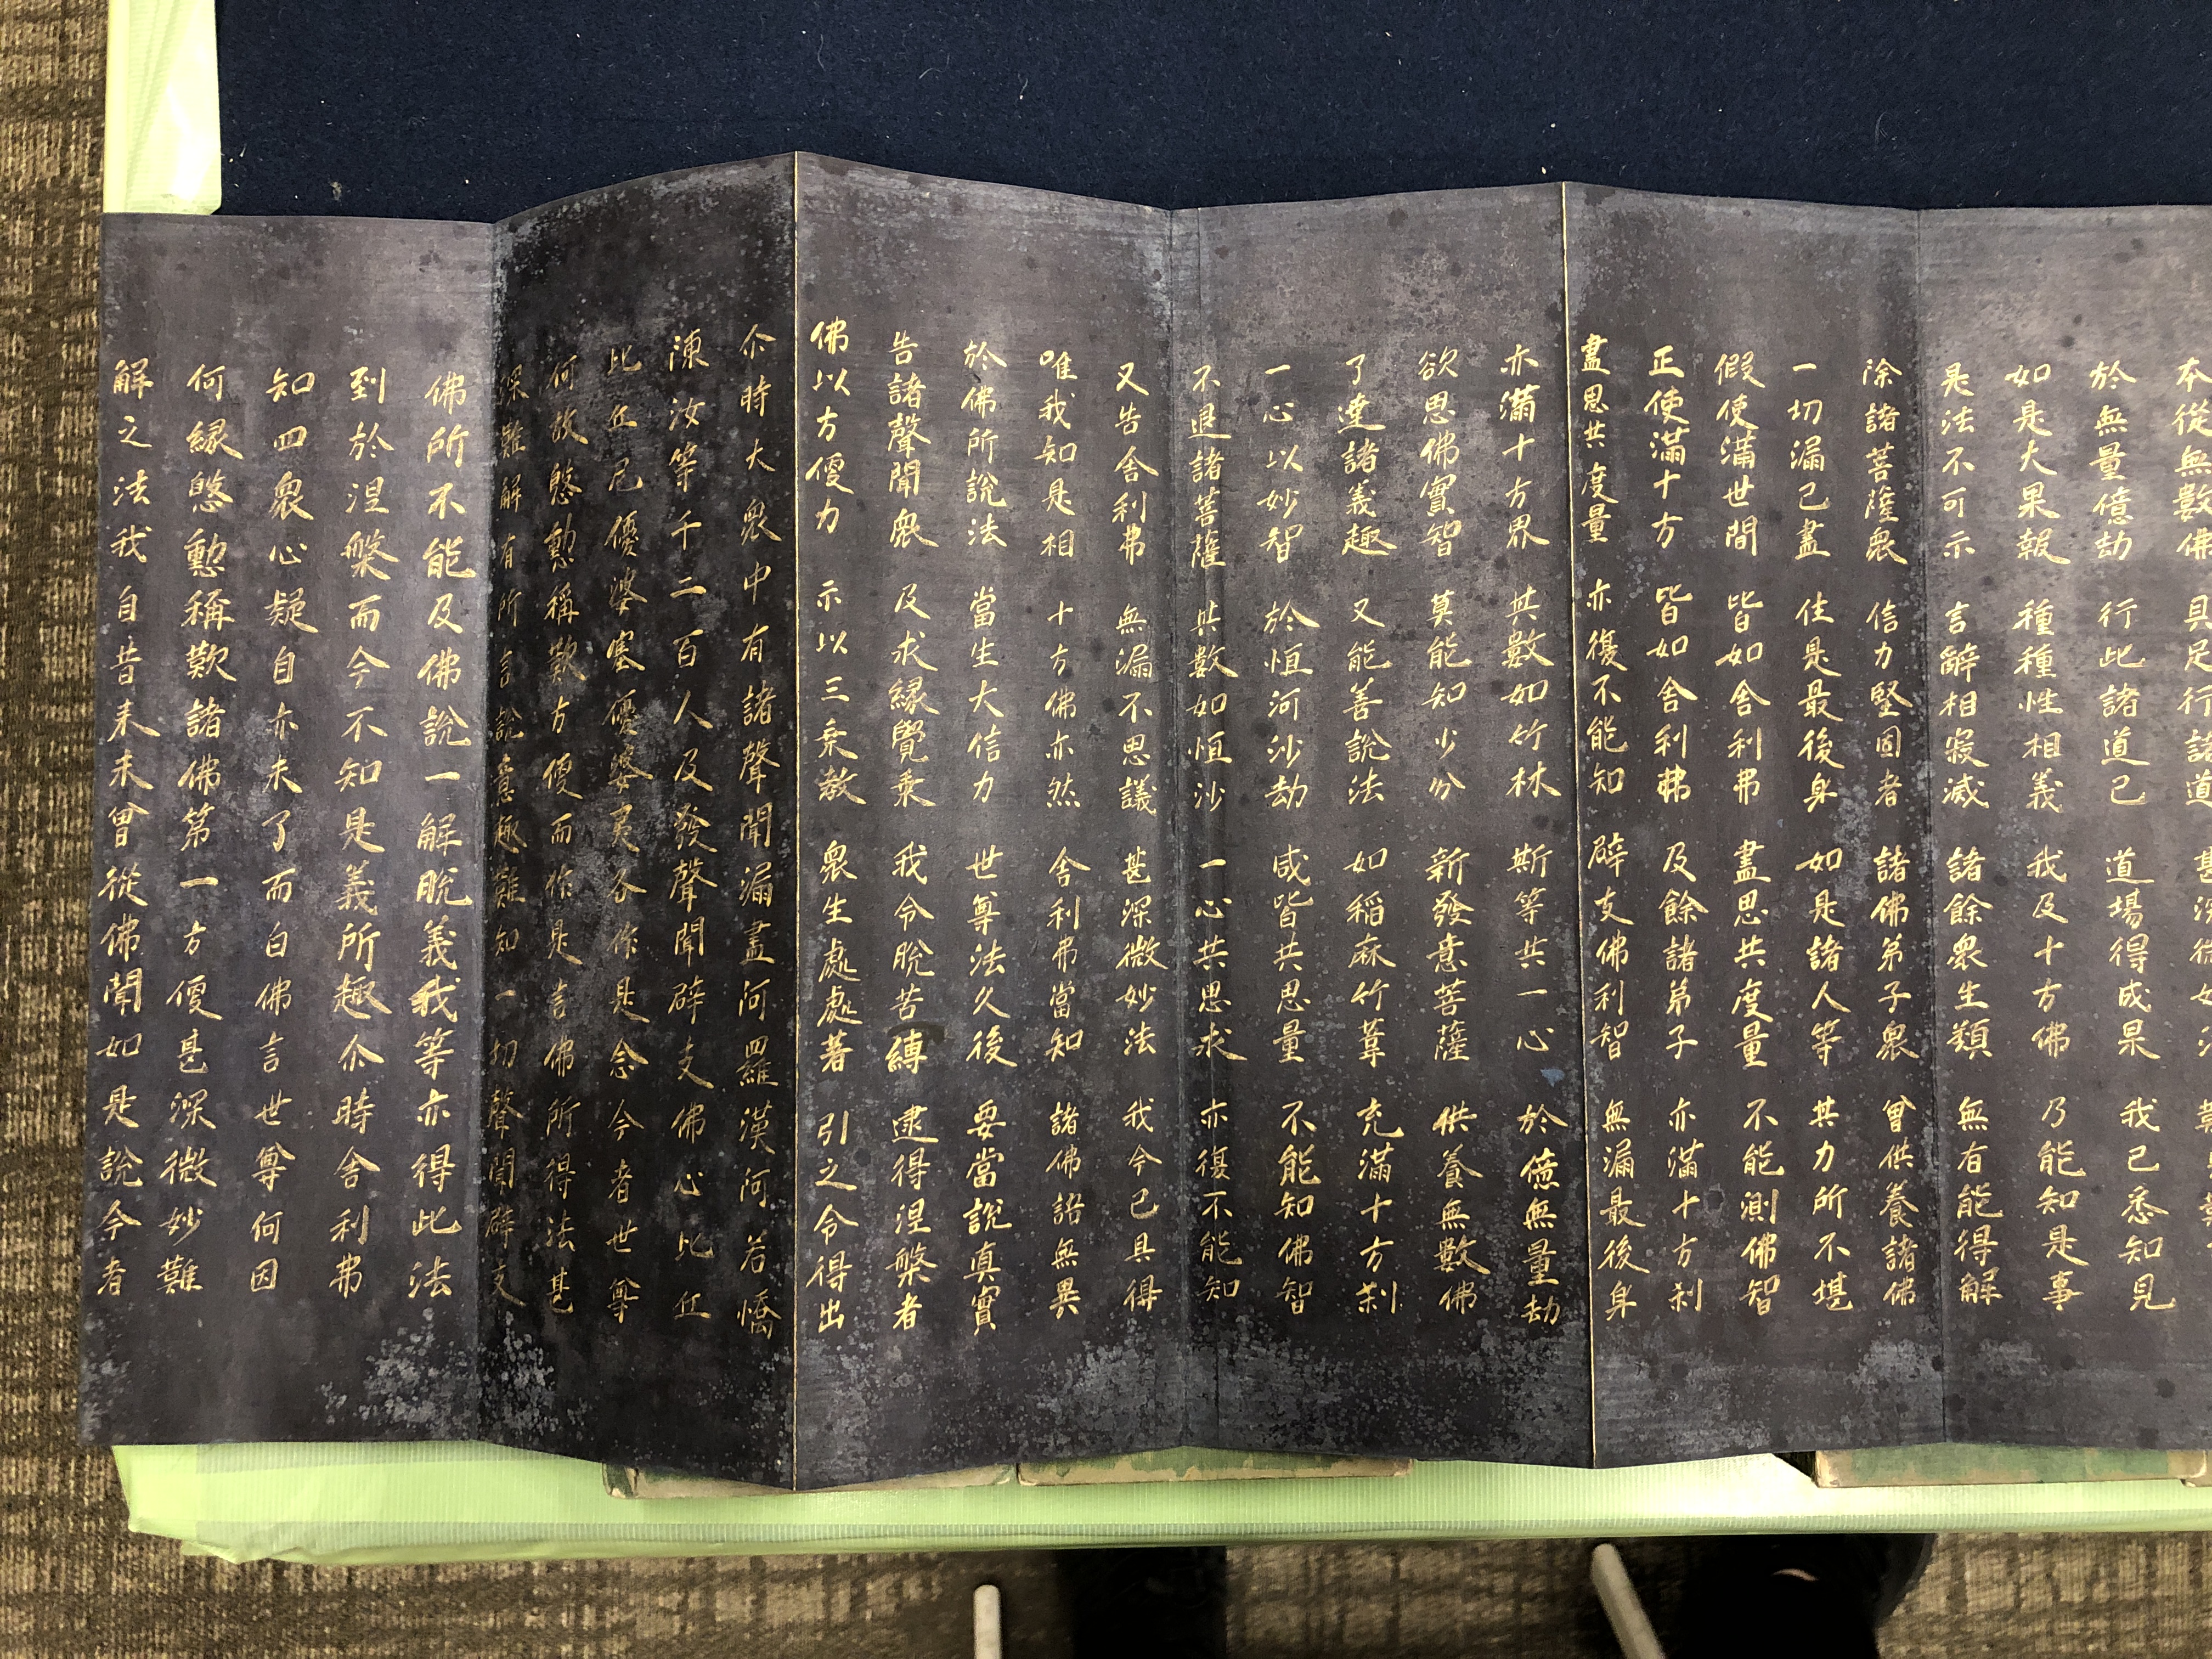 本從無數佛 具足行諸道
於無量億劫 行此諸道已 道場得成果 我已悉知見
如是大果報 種種性相義 我及十方佛 乃能知是事
是法不可示 言辭相寂滅 諸餘衆生類 無有能得解
除諸菩薩衆 信力堅固者 諸佛弟子衆 曾供養諸佛
一切漏已盡 住是最後身 如是諸人等 其力所不堪
假使滿世間 皆如舍利弗 盡思共度量 不能測佛智
正使滿十方 皆如舍利弗 及餘諸弟子 亦滿十方刹
盡思共度量 亦復不能知 辟支佛利智 無漏最後身
亦滿十方界 其數如竹林 斯等共一心 於億無量劫
欲思佛實智 莫能知少分 新發意菩薩 供養無數佛
了達諸義趣 又能善說法 如稻麻竹葦 充滿十方刹
一心以妙智 於恒河沙劫 咸皆共思量 不能知佛智
不退諸菩薩 其數如恒沙 一心共思求 亦復不能知
又告舍利弗 無漏不思議 甚深微妙法 我今已具得
唯我知是相 十方佛亦然 舍利弗當知 諸佛語無異
於佛所說法 當生大信力 世尊法久後 要當說真實
告諸聲聞衆 及求緣覺乘 我令脫苦縛 逮得涅槃者
佛以方便力 示以三乘教 衆生處處著 引之令得出
尒時大衆中有諸聲聞漏盡阿羅漢阿若憍
陳汝等千二百人及發聲聞辟支佛心比丘
比丘尼優婆塞優婆夷各作是念今者世尊
何故慇懃稱歎方便而作是言佛所得法甚
深難解有所言說意趣難知一切聲聞辟支
佛所不能及佛說一解脫義我等亦得此法
到於涅槃而今不知是義所趣尒時舍利弗
知四衆心疑自亦未了而白佛言世尊何因
何緣慇懃稱歎諸佛第一方便甚深微妙難
解之法我自昔來未曾從佛聞如是說今者